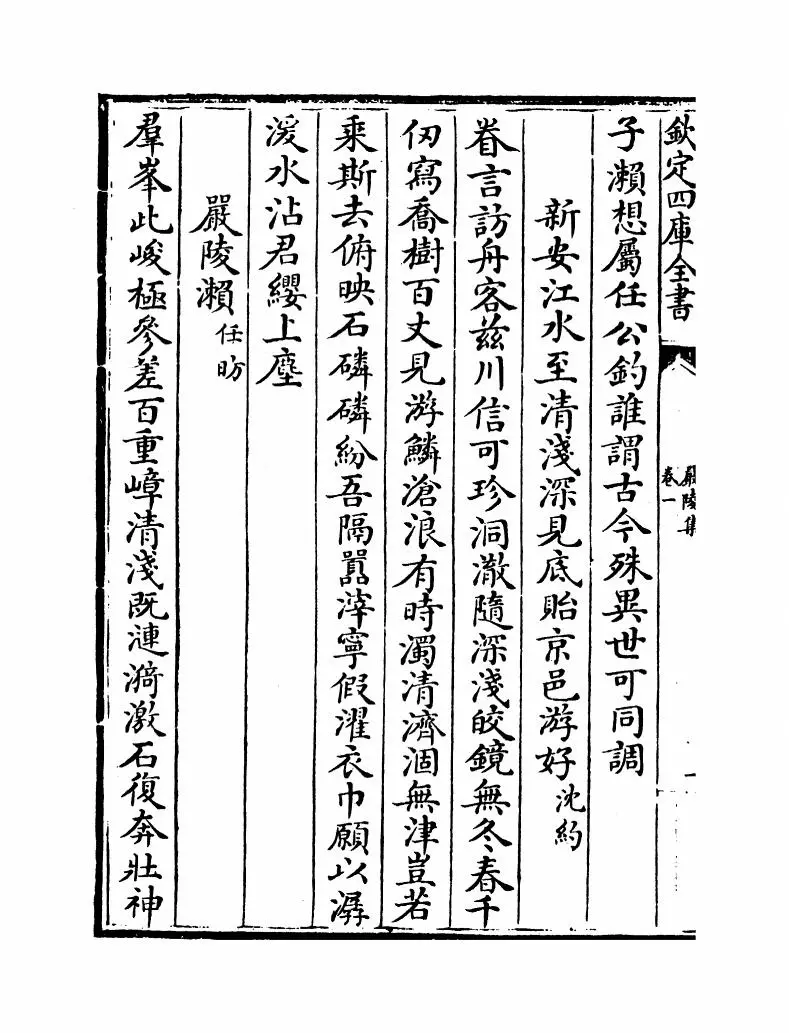 欽定四庫全書
嚴陵集
卷一
子瀨想屬任公釣誰謂古今殊異世可同調
新安江水至清淺深見底貽京邑游好沈約
眷言訪舟客茲川信可珍洞澈隨深淺皎鏡無冬春千
仞寫喬樹百丈見游鱗滄浪有時濁清濟涸無津豈若
乘斯去俯映石磷磷紛吾隔囂滓寧假濯衣巾願以潺
湲水沾君纓上塵
嚴陵瀨任昉
羣峯此峻極參差百重嶂清淺既漣漪激石復奔壯神